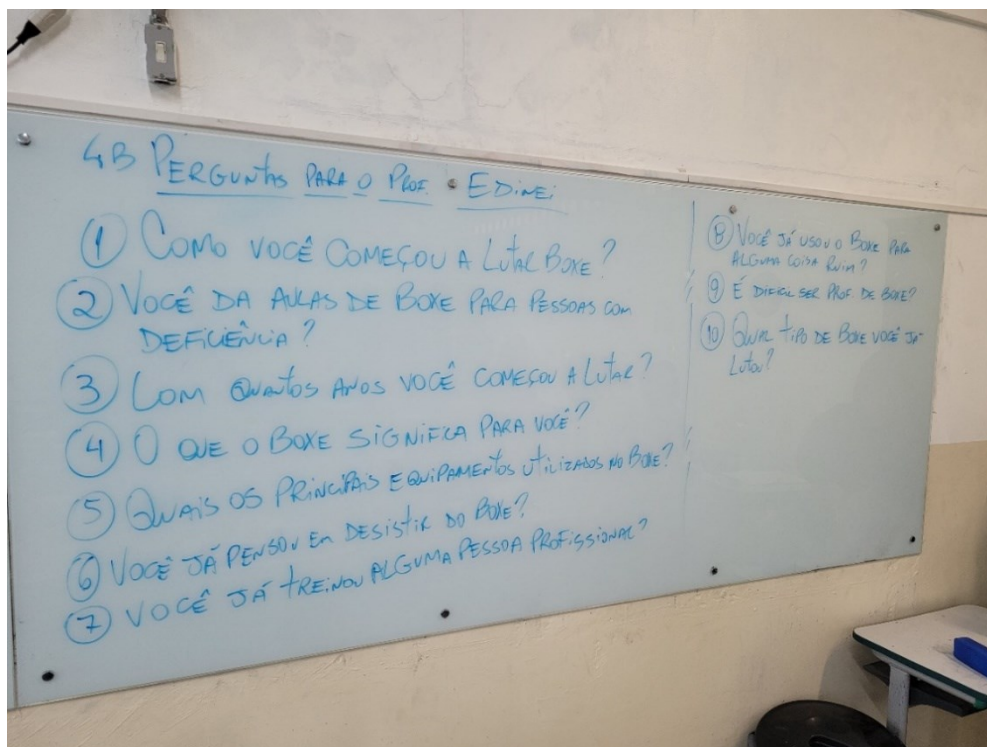 4B PERGUNTAS PARA O PROF. • EDINEI
1 COMO VOCÊ COMEÇOU A LUTAR BOXE?
2 VOCÊ DA AULAS DE BOXE PARA PESSOAS COM
DEFICIÊNCIA?
3 COM QUANTOS ANOS VOCÊ COMEÇOU A LUTAR?
4 O QUE O BOXE SIGNIFICA PARA VOCÊ?
5 QUAIS OS PRINCIPAIS EQUIPAMENTOS UTILIZADOS NO BOXE?
6 VOCÊ JÁ PENSOU EM DESISTIR DO BOXE?
7 VOCÊ JÁ TREINOU ALGUMA PESSOA PROFISSIONAL?
8 VOCÊ JÁ USOU O BOXE PARA
ALGUMA COISA RUIM?
9 É DIFICIL SER PROF. DE BOXE?
10 QUAL TIPO DE BOXE VOCÊ JÁ
LUTOU?